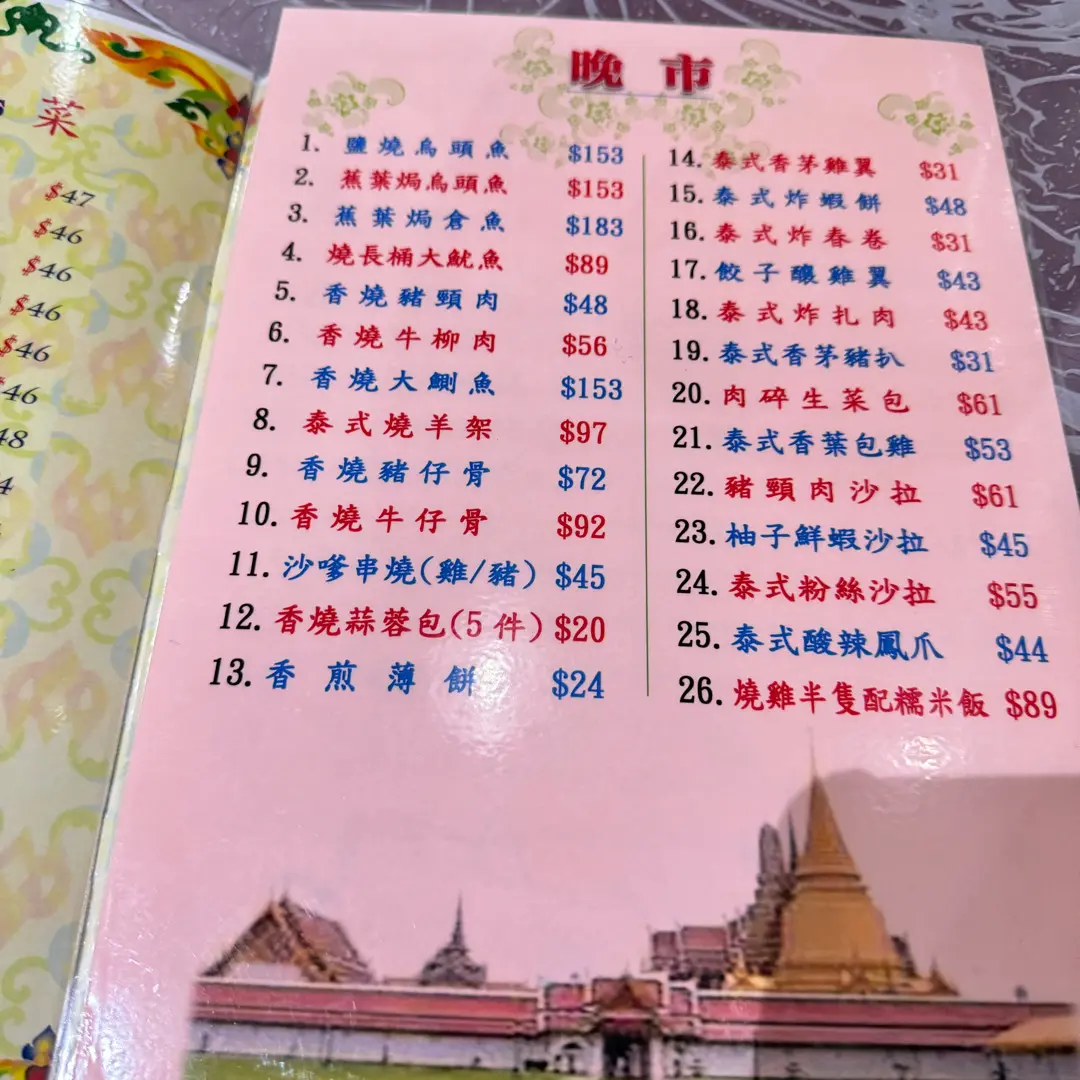 菜
$47
$46
$46
$46
$46
46
48
4
晚市
1. 鹽燒烏頭魚 $153
2. 蕉葉焗烏頭魚 $153
3. 蕉葉焗倉魚 $183
4. 燒長桶大魷魚 $89
5. 香燒豬頸肉 $48
6. 香燒牛柳肉 $56
7. 香燒大鰂魚 $153
8. 泰式燒羊架 $97
9. 香燒豬仔骨 $72
10. 香燒牛仔骨 $92
11. 沙嗲串燒(雞/豬) $45
12. 香燒蒜蓉包(5件) $20
13. 香煎薄餅 $24
14. 泰式香茅雞翼 $31
15. 泰式炸蝦餅 $48
16. 泰式炸春卷 $31
17. 餃子釀雞翼 $43
18. 泰式炸扎肉 $43
19. 泰式香茅豬扒 $31
20. 肉碎生菜包 $61
21. 泰式香葉包雞 $53
22. 豬頸肉沙拉 $61
23. 柚子鮮蝦沙拉 $45
24. 泰式粉絲沙拉 $55
25. 泰式酸辣鳳爪 $44
26. 燒雞半隻配糯米飯 $89